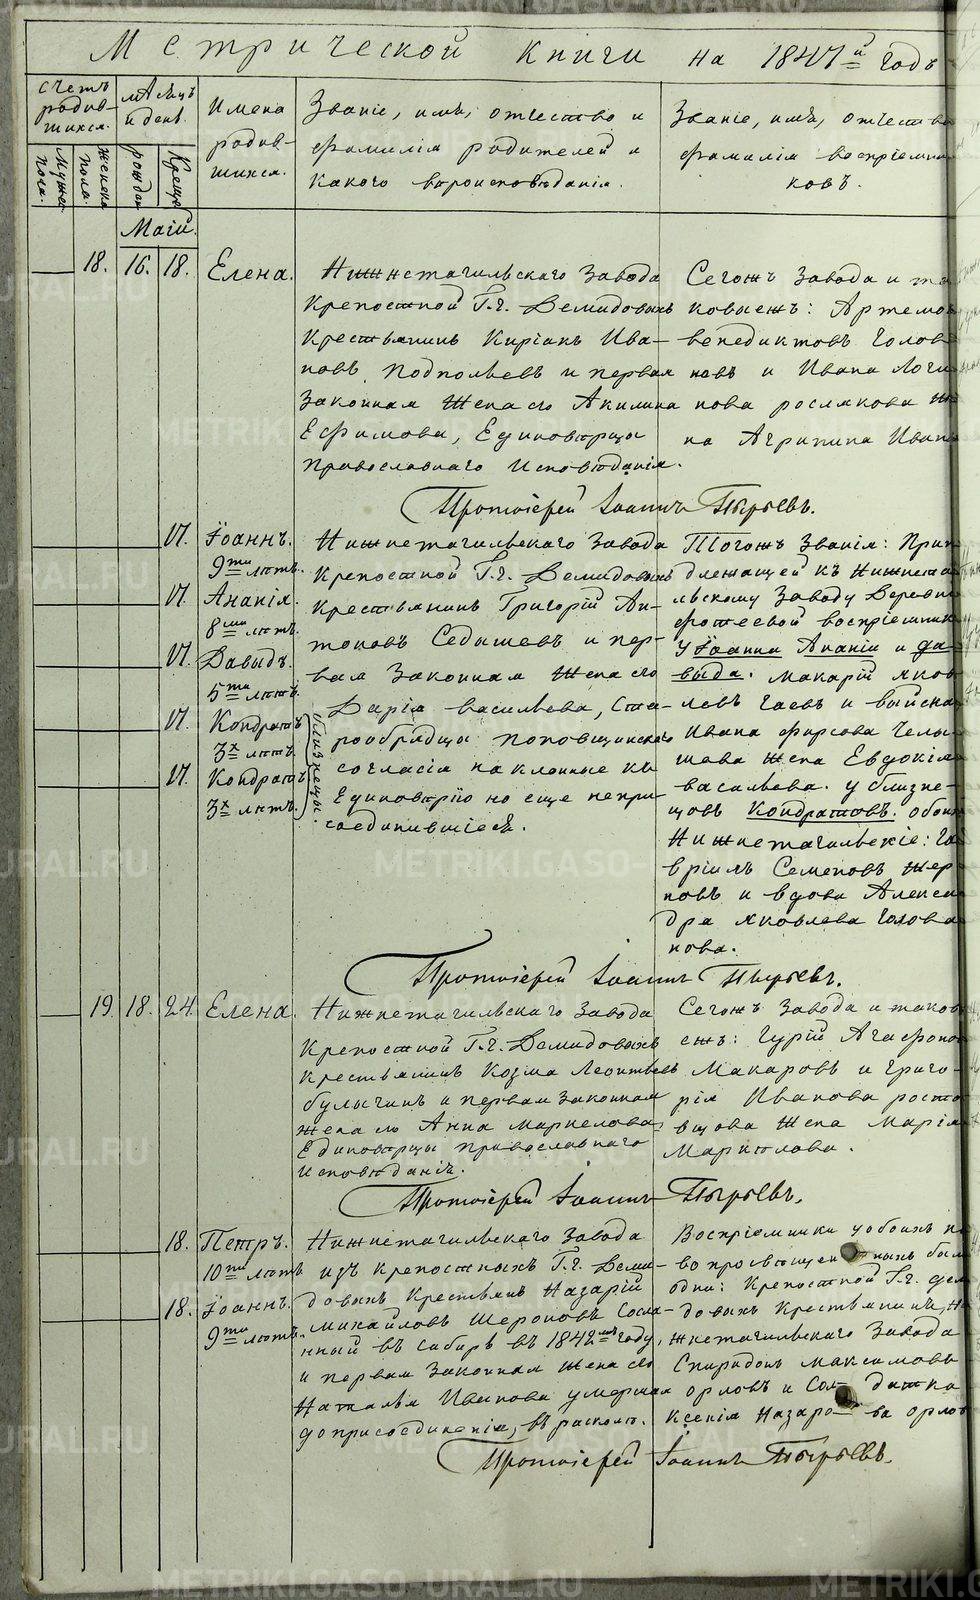 Метрической книги на 1847й годъ
Счетъ родив-
шихся.
Мѣсяцъ
и день.
Имена
родив-
шихся.
Званіе, имя, отчество и
фамилія родителей и
какого вѣроисповѣданія.
Званіе, имя, отчество
фамилія воспріемни-
ковъ.
Мужес.
пола.
Женска
пола.
рожден
Креще
Маій.
18. 16. 18. Елена.
Нижнетагильскаго Завода
Крепостной Г.г. Демидовыхъ
Крестьянинъ Киріакъ Ива-
новъ Подпольевъ и первая
Законная Жена его Акилина
Ефимова, Единовѣрцы
Православнаго Исповѣданія.
Сегожъ Завода и та
ковыежъ: Артемо
венедиктовъ Голов
новъ и Ивана Логи
нова рослякова Же
на Агрипина Ивано
Протоіерей Іоаннъ Пырьевъ.
17. Іоаннъ.
9ти лѣтъ.
17. Ананія.
8ми лѣтъ.
17. Давыдъ.
5ти лѣтъ.
17. Кондратъ
3х лѣтъ
17. Кондратъ
3х лѣтъ.
близнецы.
Нижнетагильскаго Завода
Крепостной Г.г. Демидовыхъ
крестьянинъ Григорій Ан-
тоновъ Седышевъ и пер-
вая Законная Жена его
Дарія васильева, Ста-
рообрядцы поповщинскаго
согласія наклонные къ
Единовѣрію но еще непри-
соединившіеся.
Тогожъ Званія: Прин
длежащей къ Нижнета
льскому Заводу Деревни
фотеевой воспріемник
у Іоанна Ананіи и да-
выда. Макарій яков
левъ гаевъ и выйска
Ивана фирсова Челы
шева жена Евдокія
васильева. у близне-
цовъ Кондратовъ. обои
Нижнетагильскіе: Га
вріилъ Семеновъ Жер
новъ и вдова Алекса
дра яковлева Голова
нова.
Протоіерей Іоаннъ Пырьевъ.
19. 18. 24. Елена.
Нижнетагильскаго Завода
Крепостной Г.г. Демидовыхъ
Крестьянинъ Козма Леонтьевъ
булычинъ и первая законная
жена его Анна Маркелова
Единовѣрцы православнаго
исповѣданія.
Сегожъ Завода и таков
ежъ: Гурій Агафоно
Макаровъ и Григо-
рія Иванова росто
вцова Жена Марія
Маркелова.
Протоіерей Іоаннъ Пырьевъ.
18. Петръ.
10ти лѣтъ
18. Іоаннъ.
9ти лѣтъ.
Нижнетагильскаго Завода
изъ крепостныхъ Г.г. Деми-
довыхъ Крестьянъ Назарій
Михайловъ Шероновъ Сосла-
нный въ Сибирь въ 1842мъ году,
и первая Законная Жена его
Наталья Иванова умершая
до присоединенія, въ расколѣ.
Воспріемники у обоихъ
во просвѣщен ныхъ были
одни: Крепостной Г.г. Деми
довыхъ Крестьянинъ, Ни
жнетагильскаго Завода
Спиридонъ Максимовъ
орловъ и Сол датка
Ксенія Назаро ва орлов
Протоіерей Іоаннъ Пырьевъ.
METRIKI.GASO-URAL.RU